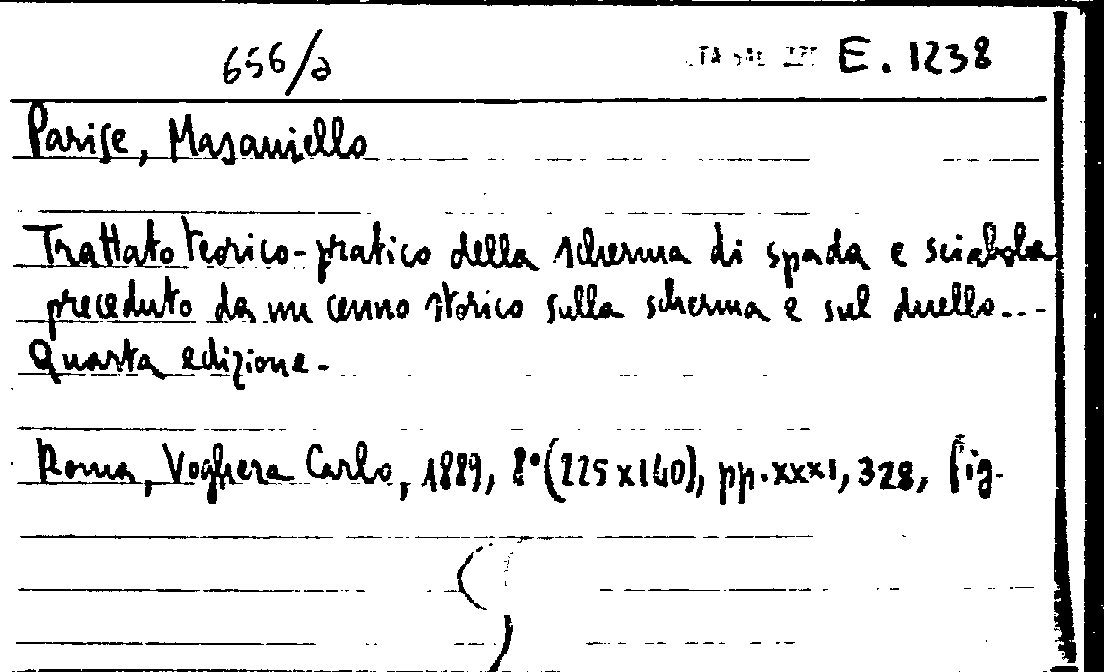 656/a E. 1238
Parise, Masaniello
Trattato teorico-pratico della scherma di spada e sciabola
preceduto da un cenno storico sulla scherma e sul duello...
Quarta edizione.
Roma, Voghera Carlo, 1889, 8°(225x140), pp. XXXI, 328, fig.